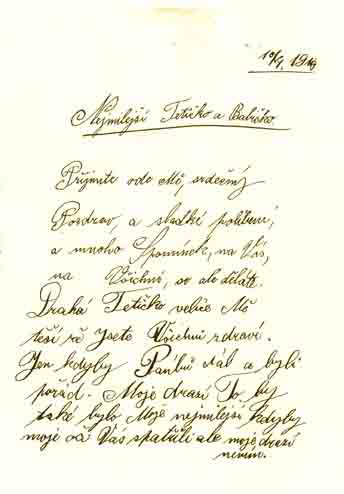 10/9. 1919
Nejmilejší Tetičko a Babičko
Přijmite ode Mě, srdečný
Pozdrav, a sladké políbení,
a mnoho Spomínek, na Vás,
na Všichni, co ale děláte.
Drahá Tetičko velice Mě
těší že Jsete Všichni zdraví.
Jen kdyby Pánbů dál a byli
pořád. Moje drazí To by
také bylo Moje nejmilejší kdyby
moje oči Vás spatřili ale moje drazí
nevím.